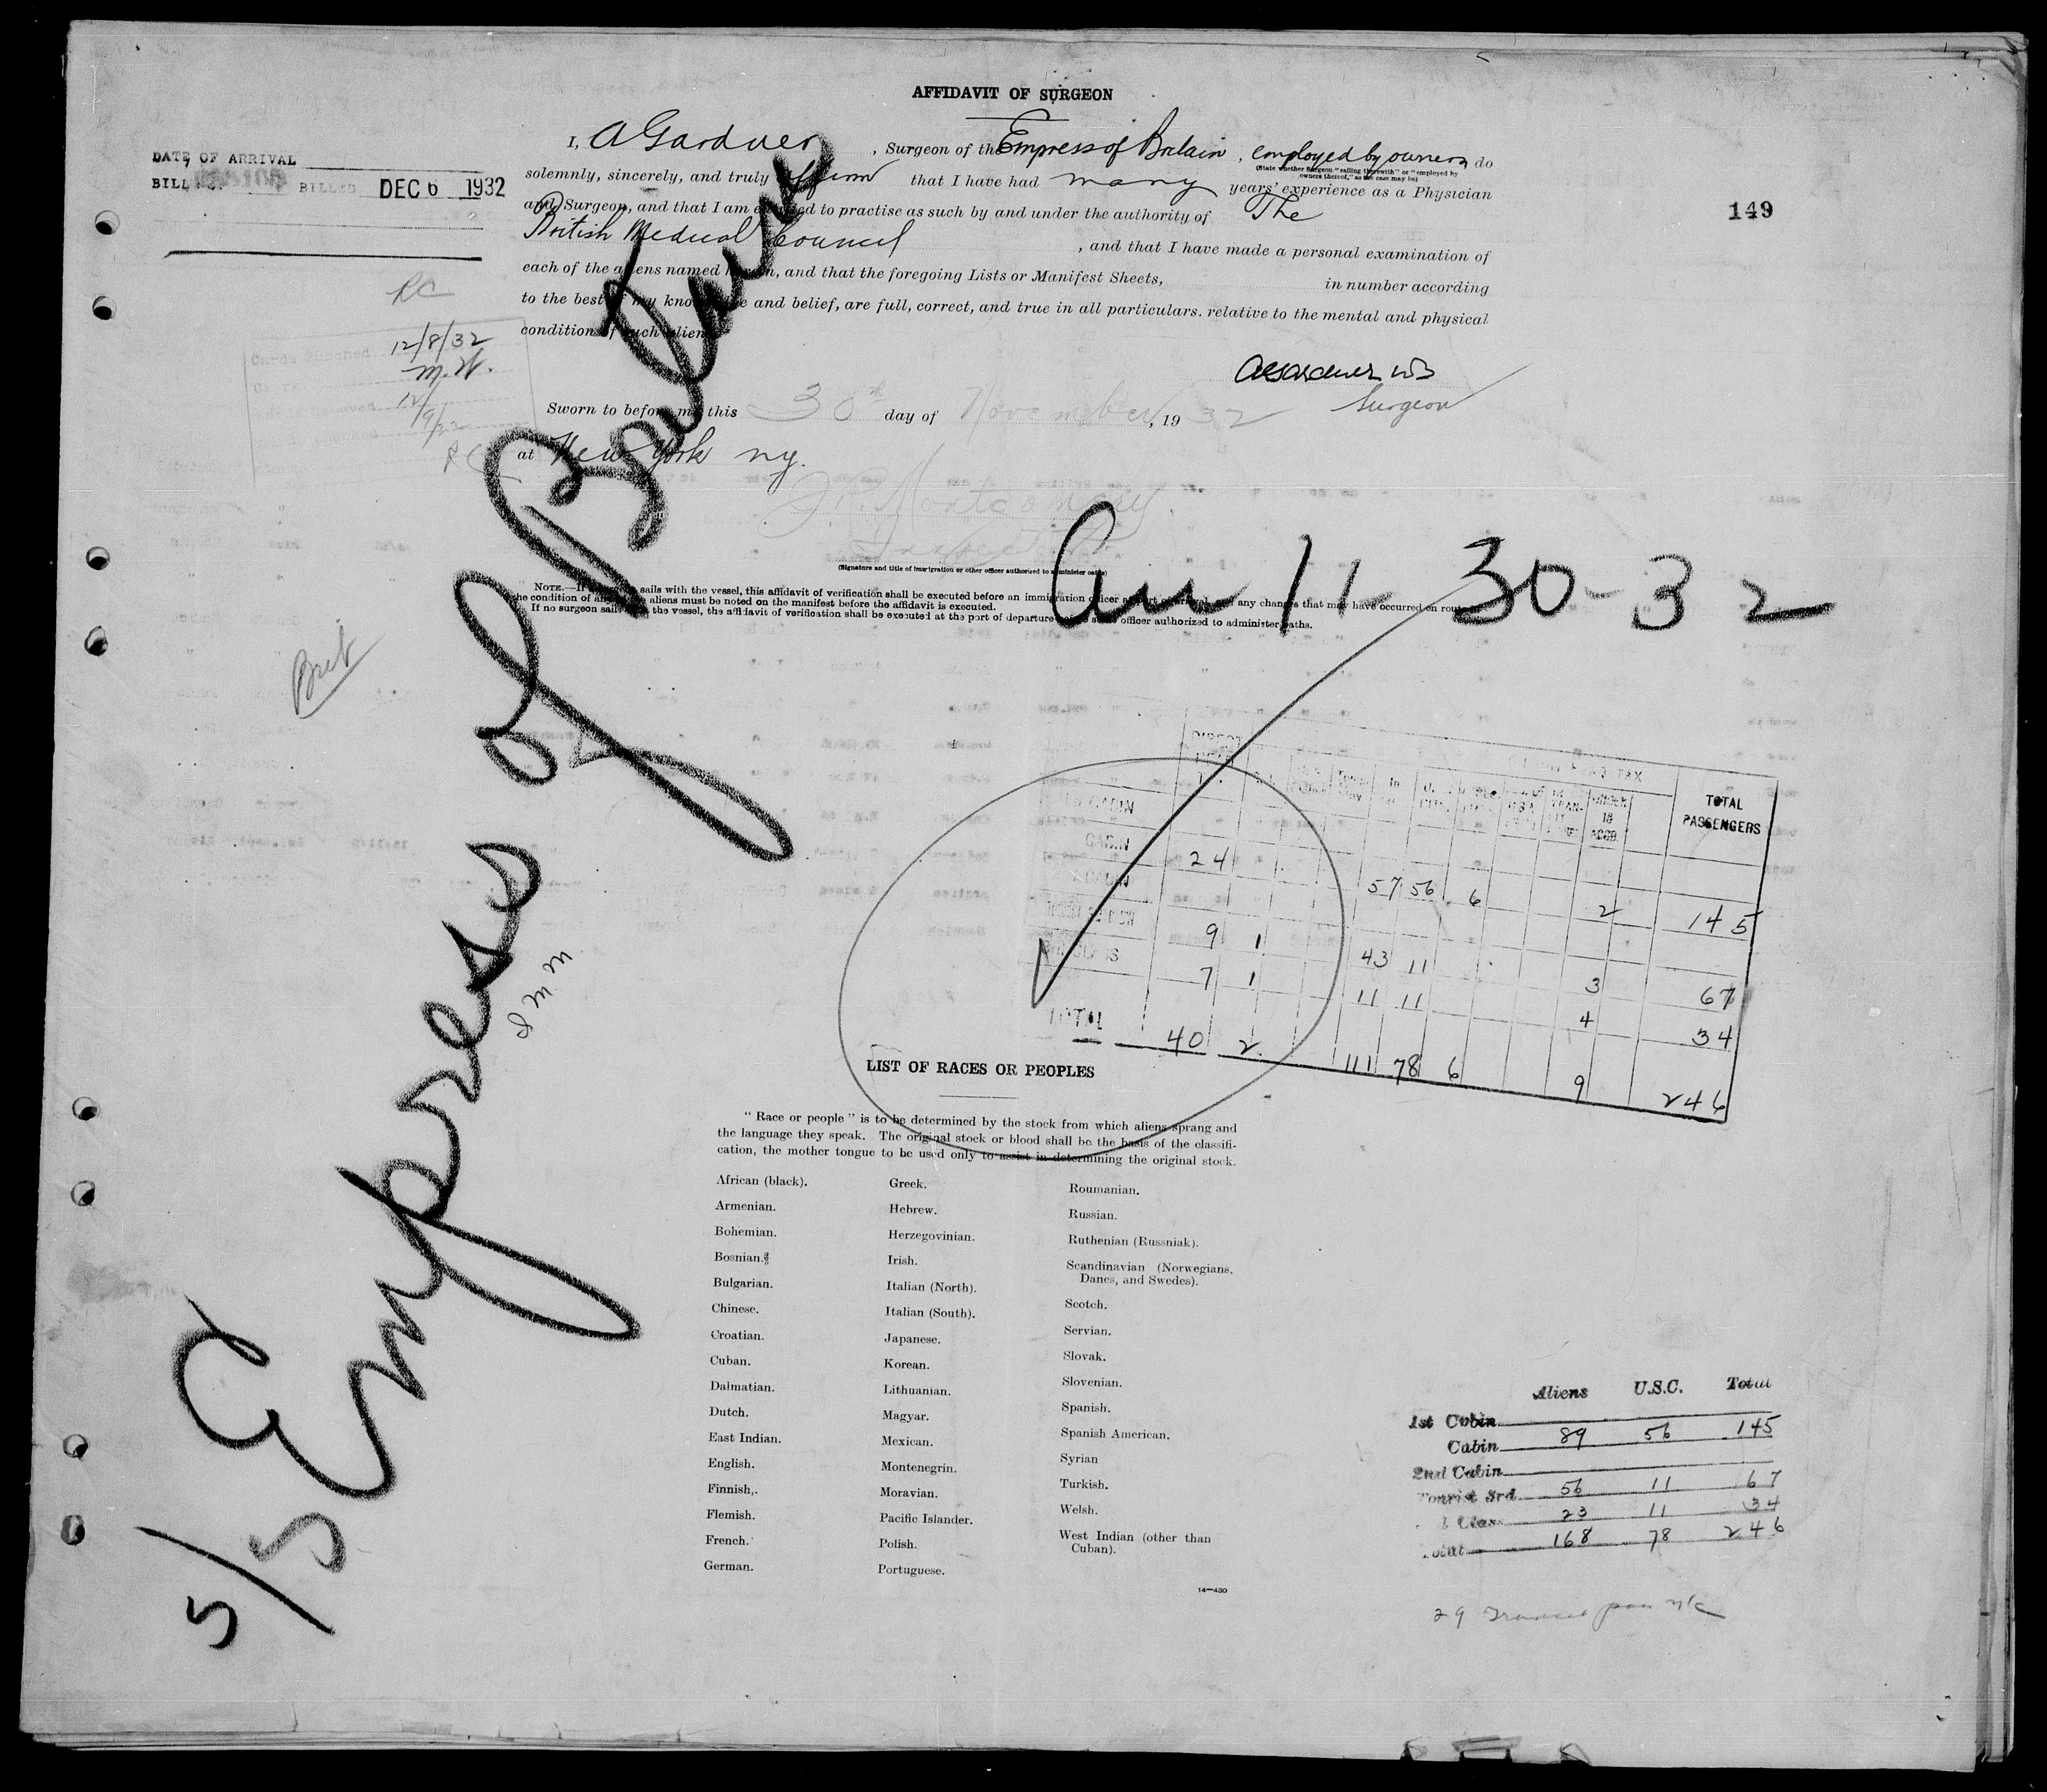 AFFIDAVIT OF SURGEON
I, A Gardner, Surgeon of the Empress of Britain, employed by owners do
(State whether Surgeon "sailing therewith" or "employed by
owners thereof," as the case may be)
solemnly, sincerely, and truly affirm that I have had many years' experience as a Physician
and Surgeon, and that I am entitled to practise as such by and under the authority of The
British Medical Council, and that I have made a personal examination of
each of the aliens named herein, and that the foregoing Lists or Manifest Sheets, in number according
to the best of my knowledge and belief, are full, correct, and true in all particulars, relative to the mental and physical
condition of such aliens
DATE OF ARRIVAL
BILL NO. BILLED DEC 6 1932
149
RC
Cards Punched 12/8/32
Clerk M.W.
12/9/32
RC
Surgeon
Sworn to before me this 30th day of November, 1932
at New York ny.
J.R. Montgomery
Inspector
(Signature and title of immigration or other officer authorized to administer oaths)
NOTE.—If sails with the vessel, this affidavit of verification shall be executed before an immigration officer any changes that may have occurred en route
the condition of aliens must be noted on the manifest before the affidavit is executed.
If no surgeon sails the vessel, the affidavit of verification shall be executed at the port of departure officer authorized to administer oaths.
Arr 11-30-32
Brit
S/S Empress of Britain
DIRECT
TOTAL PASSENGERS
CABIN
CABIN 24 57 56 6 2 145
9 1 43 11 3 67
7 1 11 11 4 34
TOTAL 40 2 111 78 6 9 246
LIST OF RACES OR PEOPLES
"Race or people" is to be determined by the stock from which aliens sprang and
the language they speak. The original stock or blood shall be the basis of the classifi-
cation, the mother tongue to be used only to assist in determining the original stock.
African (black).
Armenian.
Bohemian.
Bosnian.
Bulgarian.
Chinese.
Croatian.
Cuban.
Dalmatian.
Dutch.
East Indian.
English.
Finnish.
Flemish.
French.
German.
Greek.
Hebrew.
Herzegovinian.
Irish.
Italian (North).
Italian (South).
Japanese.
Korean.
Lithuanian.
Magyar.
Mexican.
Montenegrin.
Moravian.
Pacific Islander.
Polish.
Portuguese.
Roumanian.
Russian.
Ruthenian (Russniak).
Scandinavian (Norwegians,
Danes, and Swedes).
Scotch.
Servian.
Slovak.
Slovenian.
Spanish.
Spanish American.
Syrian
Turkish.
Welsh.
West Indian (other than
Cuban).
14—430
Aliens U.S.C. Total
1st Cabin
Cabin 89 56 145
2nd Cabin
Tourist 3rd 56 11 67
Class 23 11 34
Total 168 78 246
29